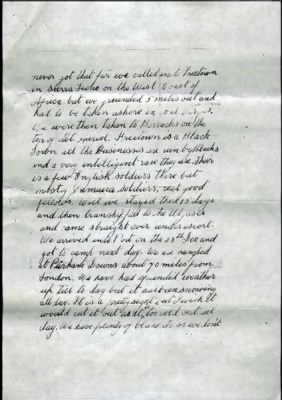 never got that far we called in to Freetown
in Sierra Leone on the West Coast of
Africa but we grounded 5 miles out and
had to be taken ashore in
We were then taken to Barracks on the
top of hill. Freetown is a Black
Town all the Businesses are run by blacks
and a very intelligent race they are. There
is a few English soldiers there but
mostly Jamaica soldiers, real good
fellows. Well we stayed there 15 days
and then to the
and came straight over under escort.
We arrived on the 28th Dec and
got to camp next day. We are camped
at Downs about 70 miles from
London. We have had splendid weather
up till to day but it has been snowing
all day. It is a pretty sight but I wish it
would cut it out as it is too cold
day. We have plenty of blankets so we won't